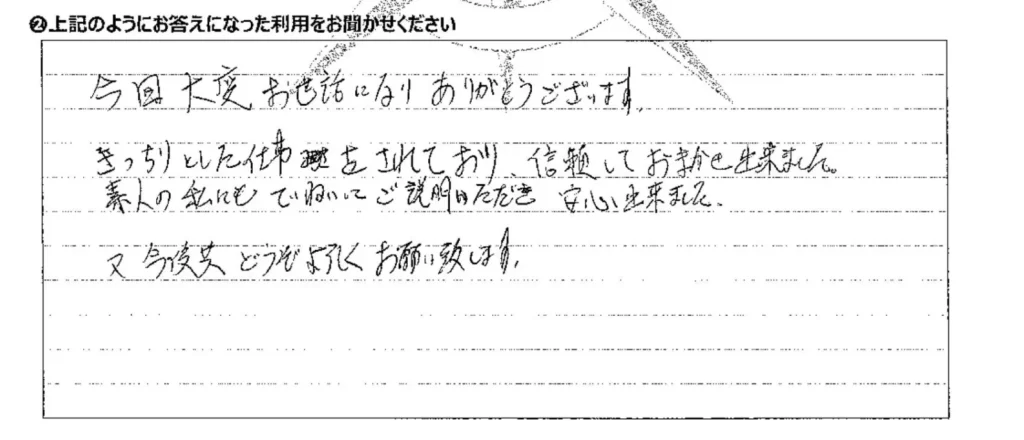 ❷上記のようにお答えになった利用をお聞かせください
今回 大変 お世話になり ありがとうございます。
きっちりとした仕事 をされており、信頼しておまかせ出来ました。
素人の私にも ていねいにご説明いただき 安心出来ました。
又 今後共 どうぞよろしく お願い致します。